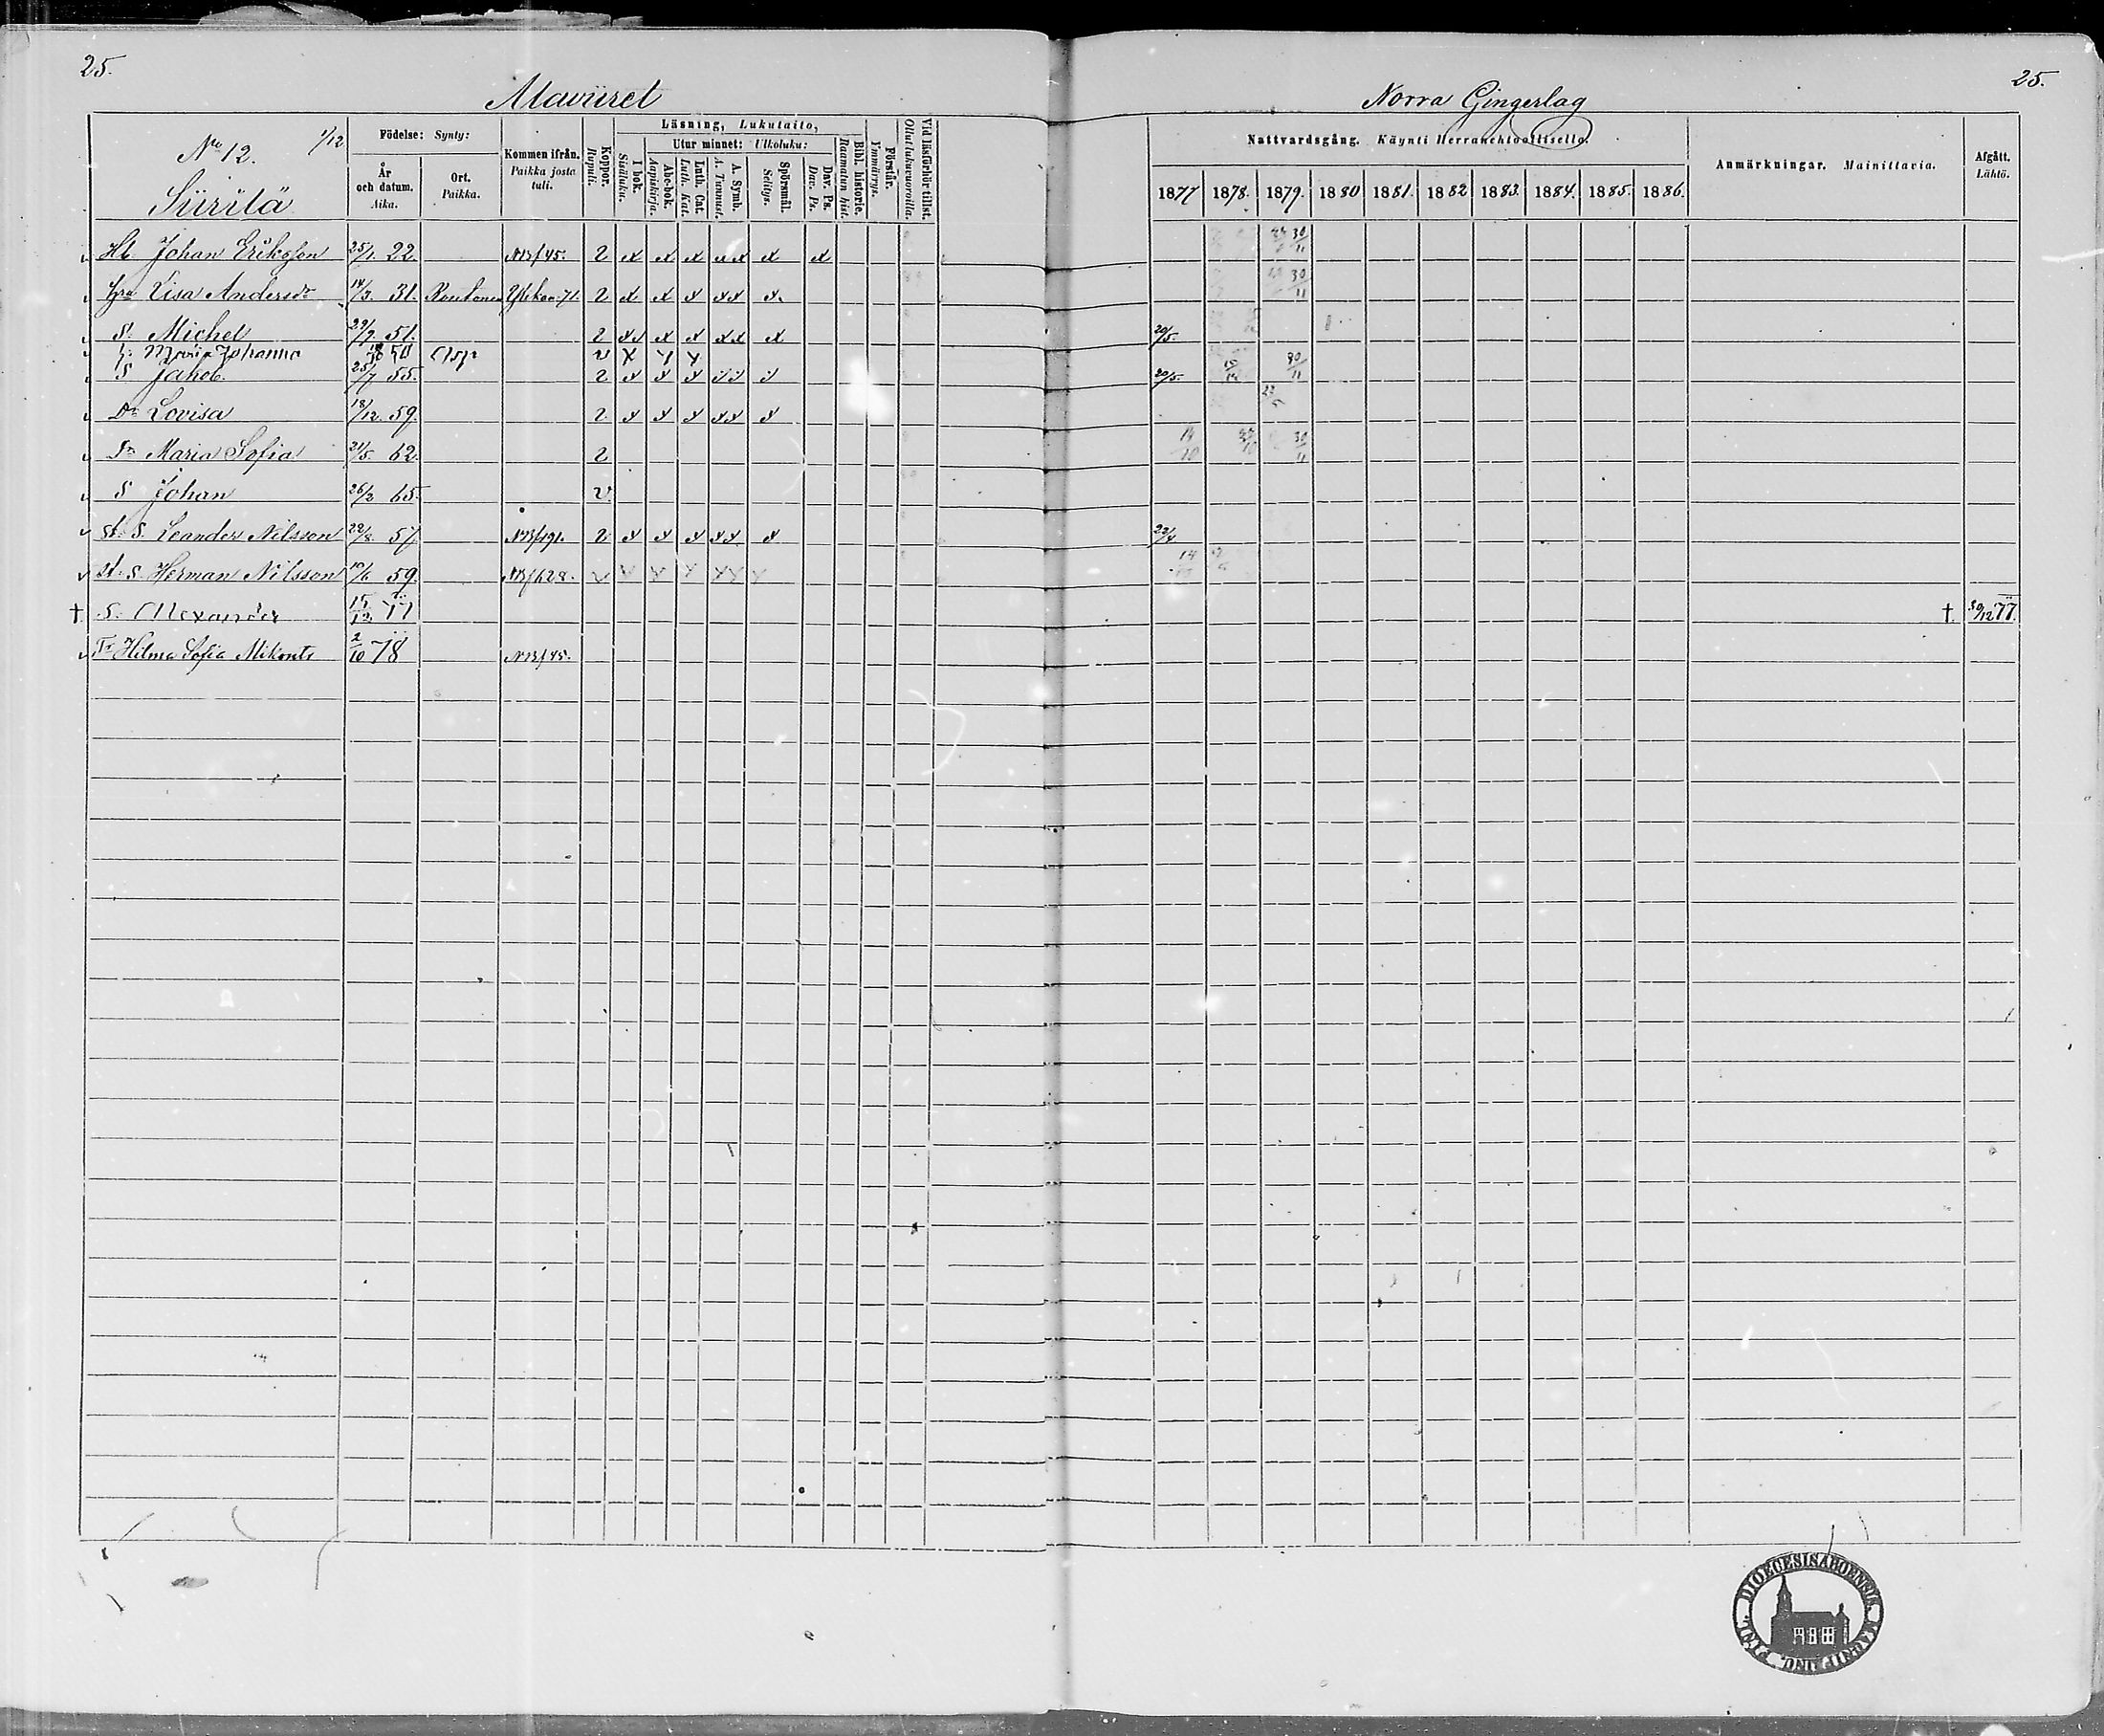 25.
Alaviiret
No 12. 1/12
Siirilä
Födelse: Synty:
År och datum. Aika.
Ort. Paikka.
Kommen ifrån. Paikka josta tuli.
Koppor. Rupuli.
Läsning, Lukutaito,
I bok. Sisäluku.
Utur minnet: Ulkoluku:
Abc-bok. Aapiskirja.
Luth. Cat. Luth. Kat.
A. Symb. A. Tunnust.
Spörsmål. Selitys.
Dav. Ps. Dav. Ps.
Bibl. historie. Raamatun hist.
Förstår. Ymmärrys.
Vid läsförhör tillst. Ollut lukuvuoroilla.
Hb Johan Eriksson 25/1. 22 N13/45. 2 x x x xx x x
Hru Lisa Andersdr 14/3. 31. 71. 2 x x x xx x
S. Michel 29/9 51. 2 xx x x xx x
h. Maria Johanna v x x x
S Jakob. 25/7 55. 2 x x x xx x
Dr Lovisa 18/12. 59. 2 x x x xx x
Dr Maria Sofia 31/5. 62. 2
S Johan 26/2 65. v
St. S. Leander Nilsson 22/8. 57 2 x x x xx x
St. S. Herman Nilsson 10/6 59. N13/628. v x x x xx x
† S. Alexander 15/12 77
Dr Hilma Sofia Mikonts 2/10 78 N13/45.
25.
Norra Gingerlag
Nattvardsgång. Käynti Herranehtoollisella.
Anmärkningar. Mainittavia.
Afgått. Lähtö.
1877 1878. 1879. 1880 1881. 1882 1883. 1884. 1885. 1886.
30/11
30/11
20/5.
20/5. 30/11
14/10 30/11
†. 30/12 77.
DIOECESIS ABOENSIS